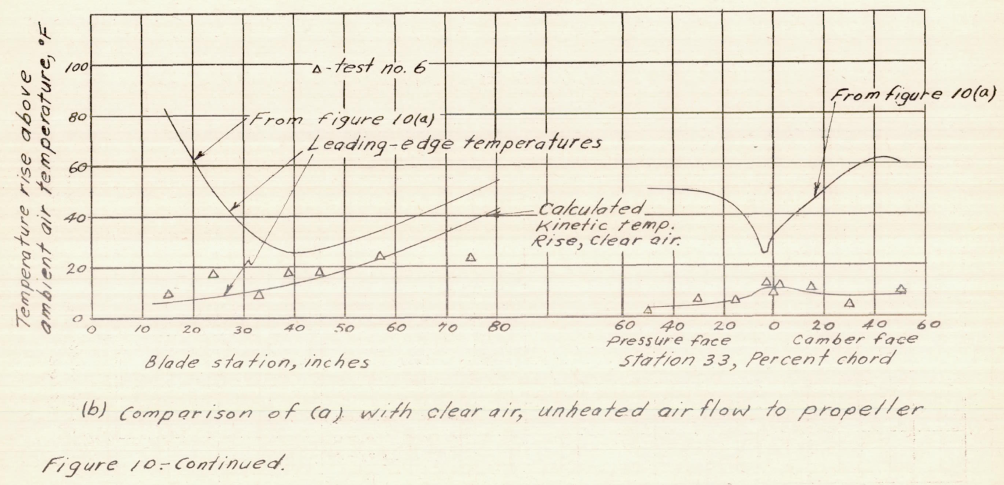 Temperature rise above
ambient air temperature, °F
100
80
60
40
20
0
△-test no. 6
From figure 10(a)
Leading-edge temperatures
Calculated
Kinetic temp.
Rise, Clear air.
From figure 10(a)
0 10 20 30 40 50 60 70 80
60 40 20 0 20 40 60
Pressure face Camber face
Blade station, inches
Station 33, Percent chord
(b) Comparison of (a) with clear air, unheated airflow to propeller
Figure 10.-Continued.